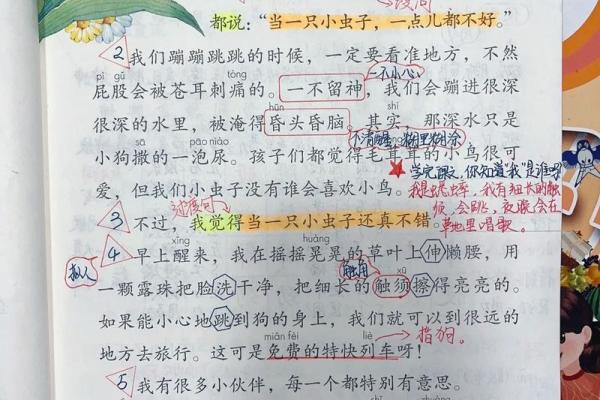 都说：“当一只小虫子，一点儿都不好。”
2 我们蹦蹦跳跳的时候，一定要看准地方，不然
pì gǔ tòng
屁股会被苍耳刺痛的。一不留神，我们会蹦进很深
一不小心
hūn shí
很深的水里，被淹得昏头昏脑。其实，那深水只是
不清醒 糊里糊涂
pāo niào
小狗撒的一泡尿。孩子们都觉得毛茸茸的小鸟很可
爱，但我们小虫子没有谁会喜欢小鸟。
学完课文，你知道“我”是谁吗？
我是蟋蟀，我有细长的触须，会跳，夜晚会在草地里唱歌。
过渡句
3 不过，我觉得当一只小虫子还真不错。
xǐng huàng
4 早上醒来，我在摇摇晃晃的草叶上伸懒腰，用
拟人
触角 xū
一颗露珠把脸洗干净，把细长的触须擦得亮亮的。
如果能小心地跳到狗的身上，我们就可以到很远的
miǎn fèi liè
地方去旅行。这可是免费的特快列车呀！
指狗。
5 我有很多小伙伴，每一个都特别有意思。